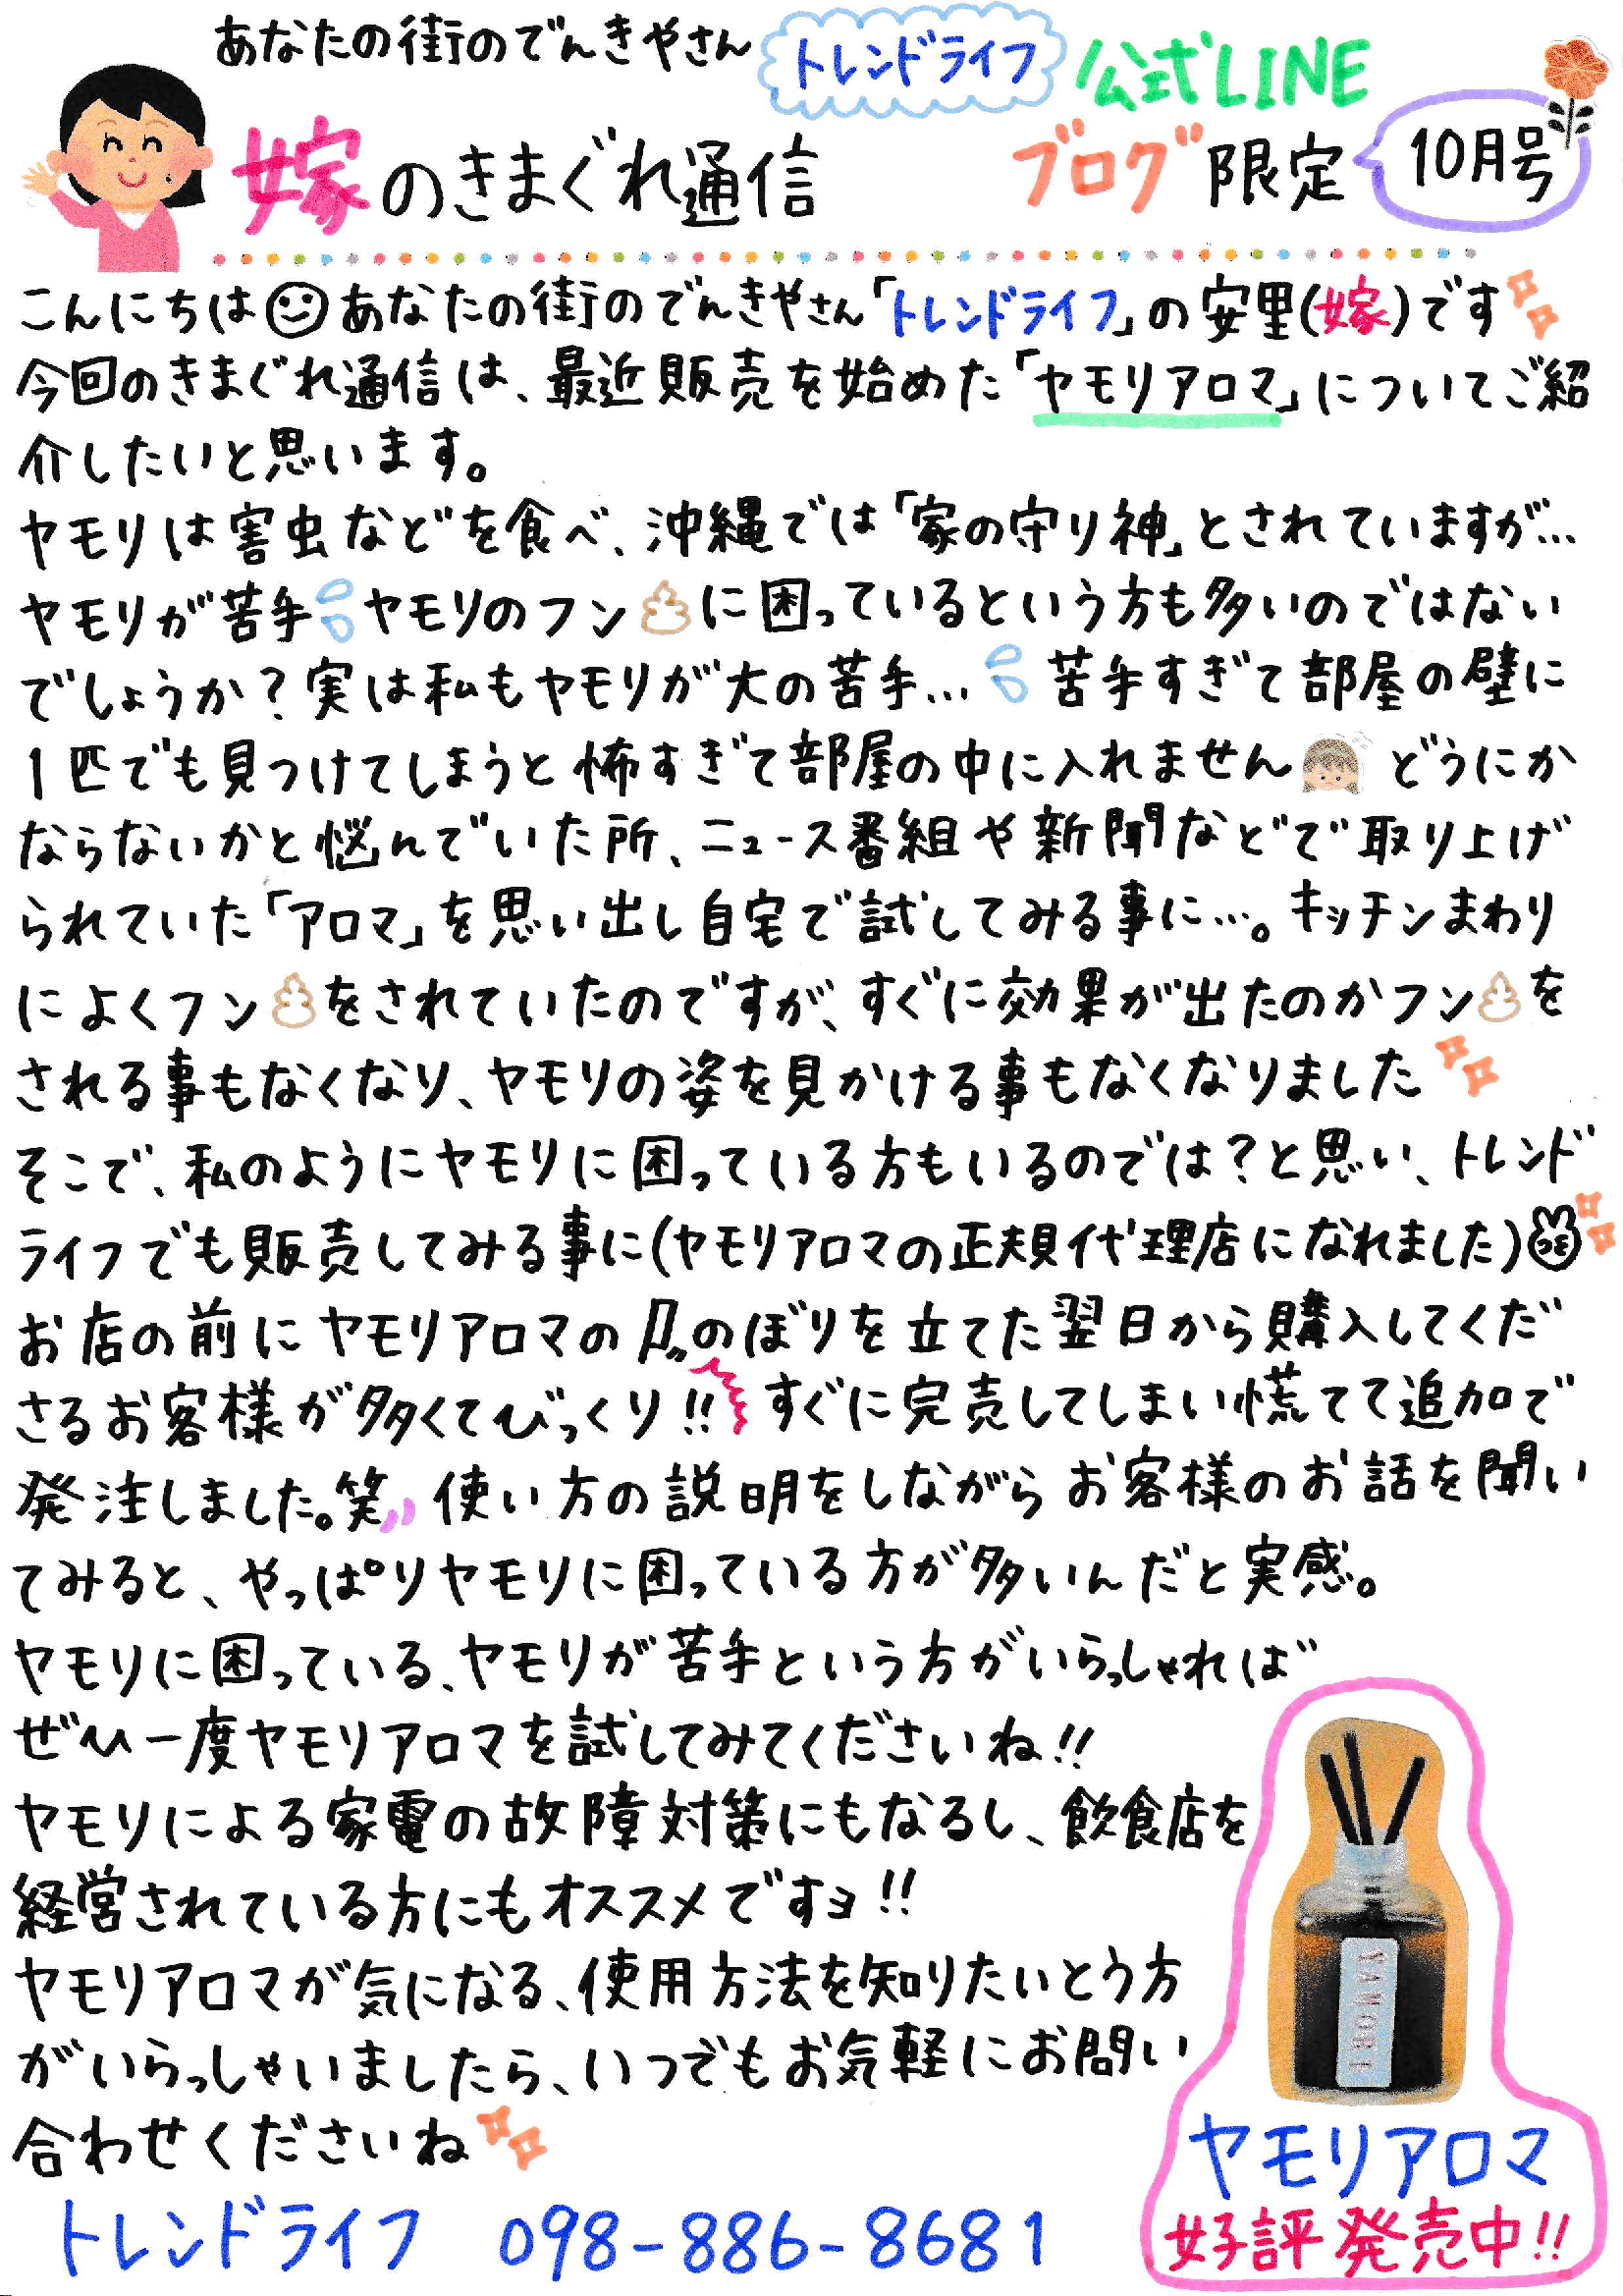 あなたの街のでんきやさん トレンドライフ 公式LINE
嫁のきまぐれ通信 ブログ限定 10月号
こんにちは あなたの街のでんきやさん「トレンドライフ」の安里(嫁)です
今回のきまぐれ通信は、最近販売を始めた「ヤモリアロマ」についてご紹
介したいと思います。
ヤモリは害虫などを食べ、沖縄では「家の守り神」とされていますが…
ヤモリが苦手 ヤモリのフン に困っているという方も多いのではない
でしょうか？実は私もヤモリが大の苦手… 苦手すぎて部屋の壁に
1匹でも見つけてしまうと怖すぎて部屋の中に入れません どうにか
ならないかと悩んでいた所、ニュース番組や新聞などで取り上げ
られていた「アロマ」を思い出し自宅で試してみる事に…。キッチンまわり
によくフン をされていたのですが、すぐに効果が出たのかフン を
される事もなくなり、ヤモリの姿を見かける事もなくなりました
そこで、私のようにヤモリに困っている方もいるのでは？と思い、トレンド
ライフでも販売してみる事に(ヤモリアロマの正規代理店になれました)
お店の前にヤモリアロマの のぼりを立てた翌日から購入してくだ
さるお客様が多くてびっくり!! すぐに完売してしまい慌てて追加で
発注しました。笑 使い方の説明をしながらお客様のお話を聞い
てみると、やっぱりヤモリに困っている方が多いんだと実感。
ヤモリに困っている、ヤモリが苦手という方がいらっしゃれば
ぜひ一度ヤモリアロマを試してみてくださいね!!
ヤモリによる家電の故障対策にもなるし、飲食店を
経営されている方にもオススメですョ!!
ヤモリアロマが気になる、使用方法を知りたいとう方
がいらっしゃいましたら、いつでもお気軽にお問い
合わせくださいね
トレンドライフ 098-886-8681
YAMORI
ヤモリアロマ
好評発売中!!